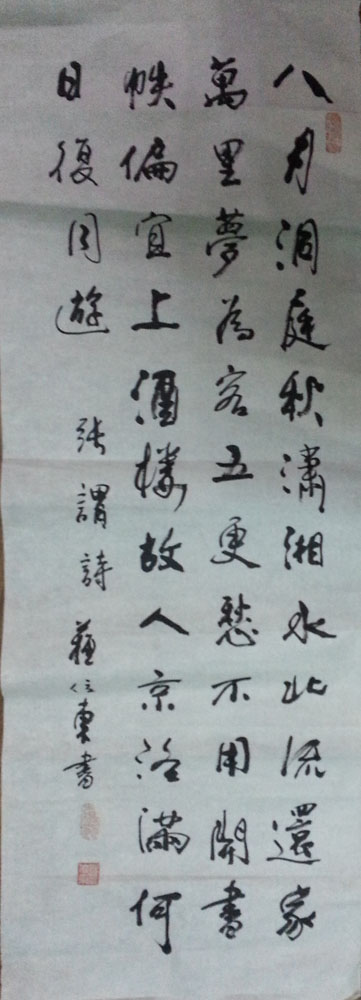 八月洞庭秋瀟湘水北流還家
萬里夢為客五更愁不用開書
帙偏宜上酒樓故人京洛滿何
日復同遊
張謂詩 蘇仁東書